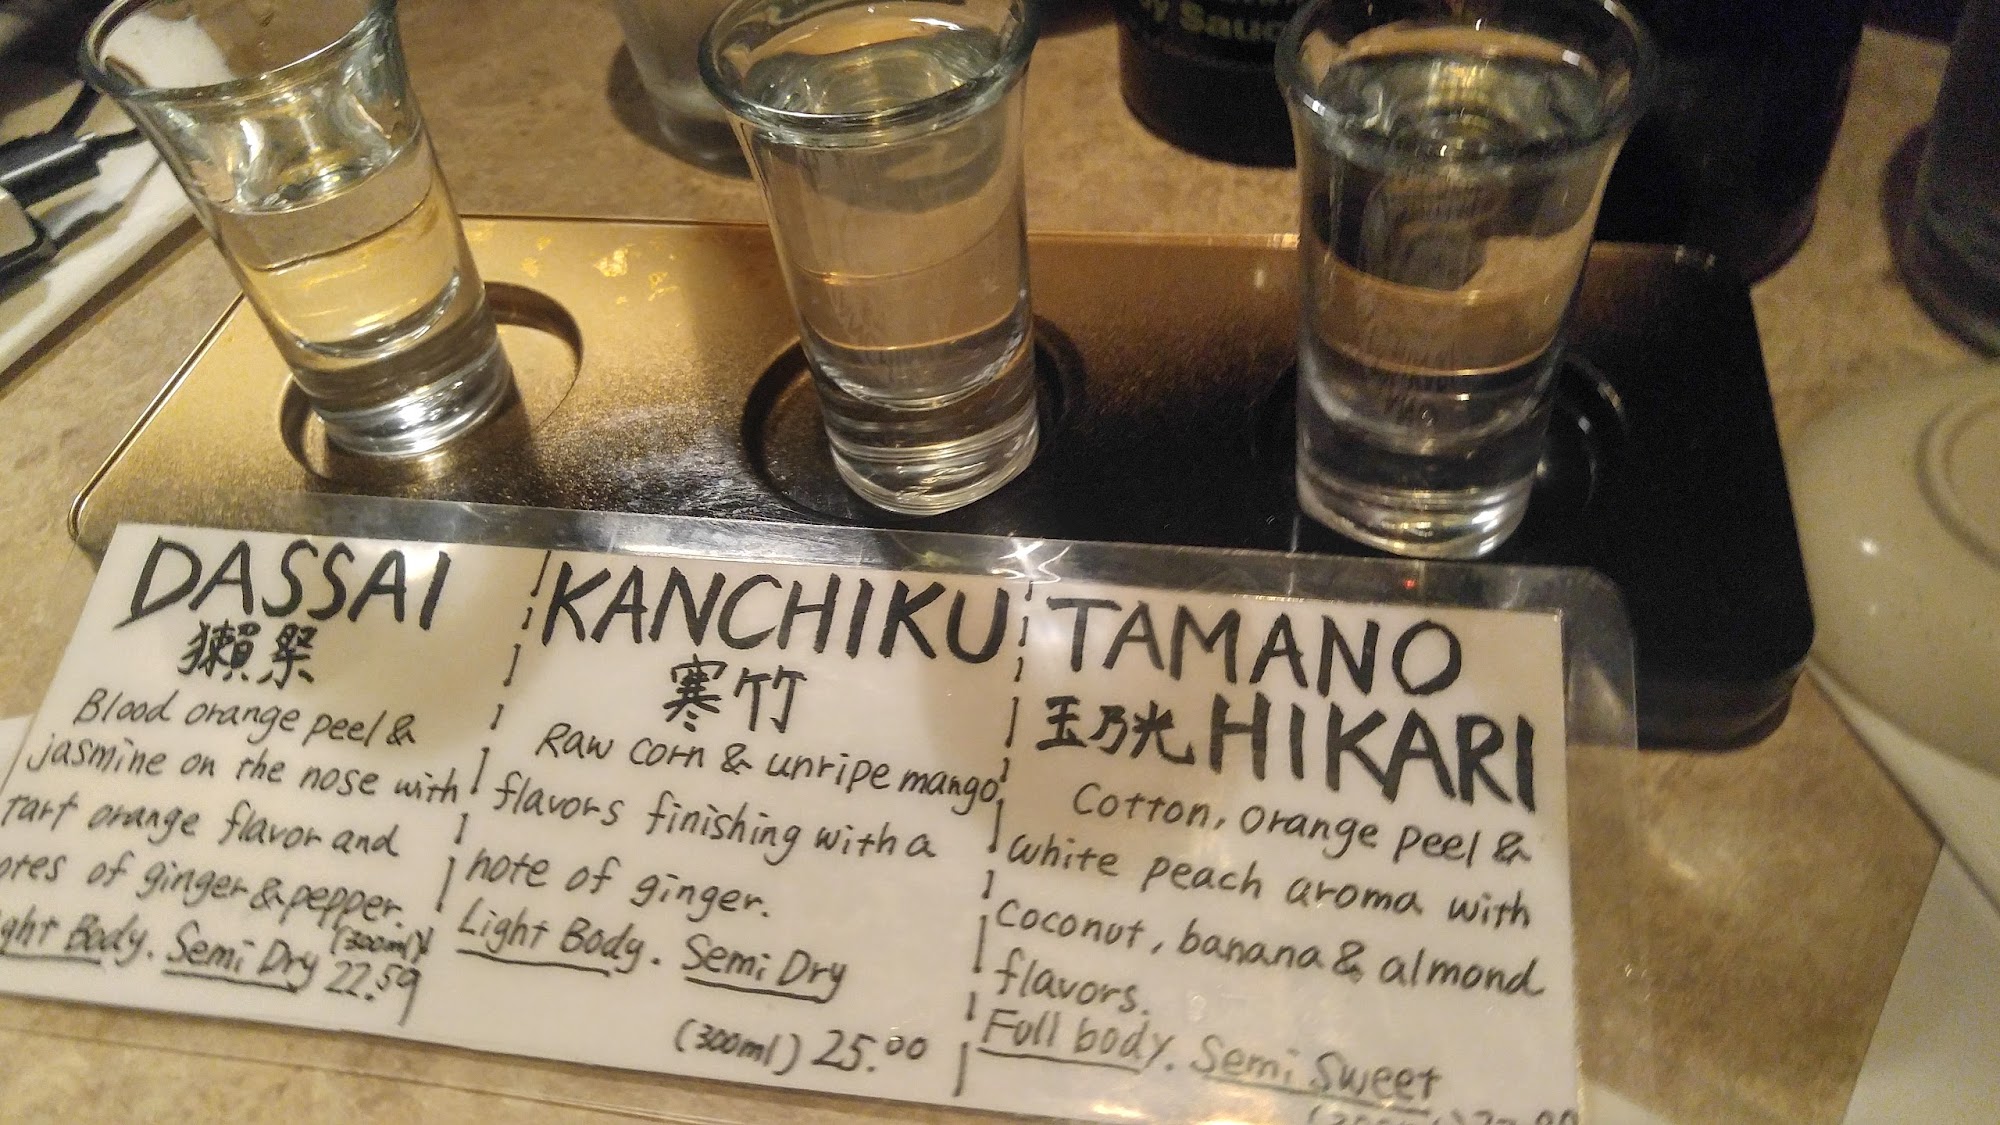 y Sauc
DASSAI
獺祭
Blood orange peel &
jasmine on the nose with
tart orange flavor and
otes of ginger & pepper.
ght Body. Semi Dry
(300ml)
22.59
KANCHIKU
寒竹
Raw corn & unripe mango
flavors finishing with a
note of ginger.
Light Body. Semi Dry
(300ml) 25.00
TAMANO
玉乃光 HIKARI
Cotton, orange peel &
white peach aroma with
coconut, banana & almond
flavors.
Full body. Semi Sweet